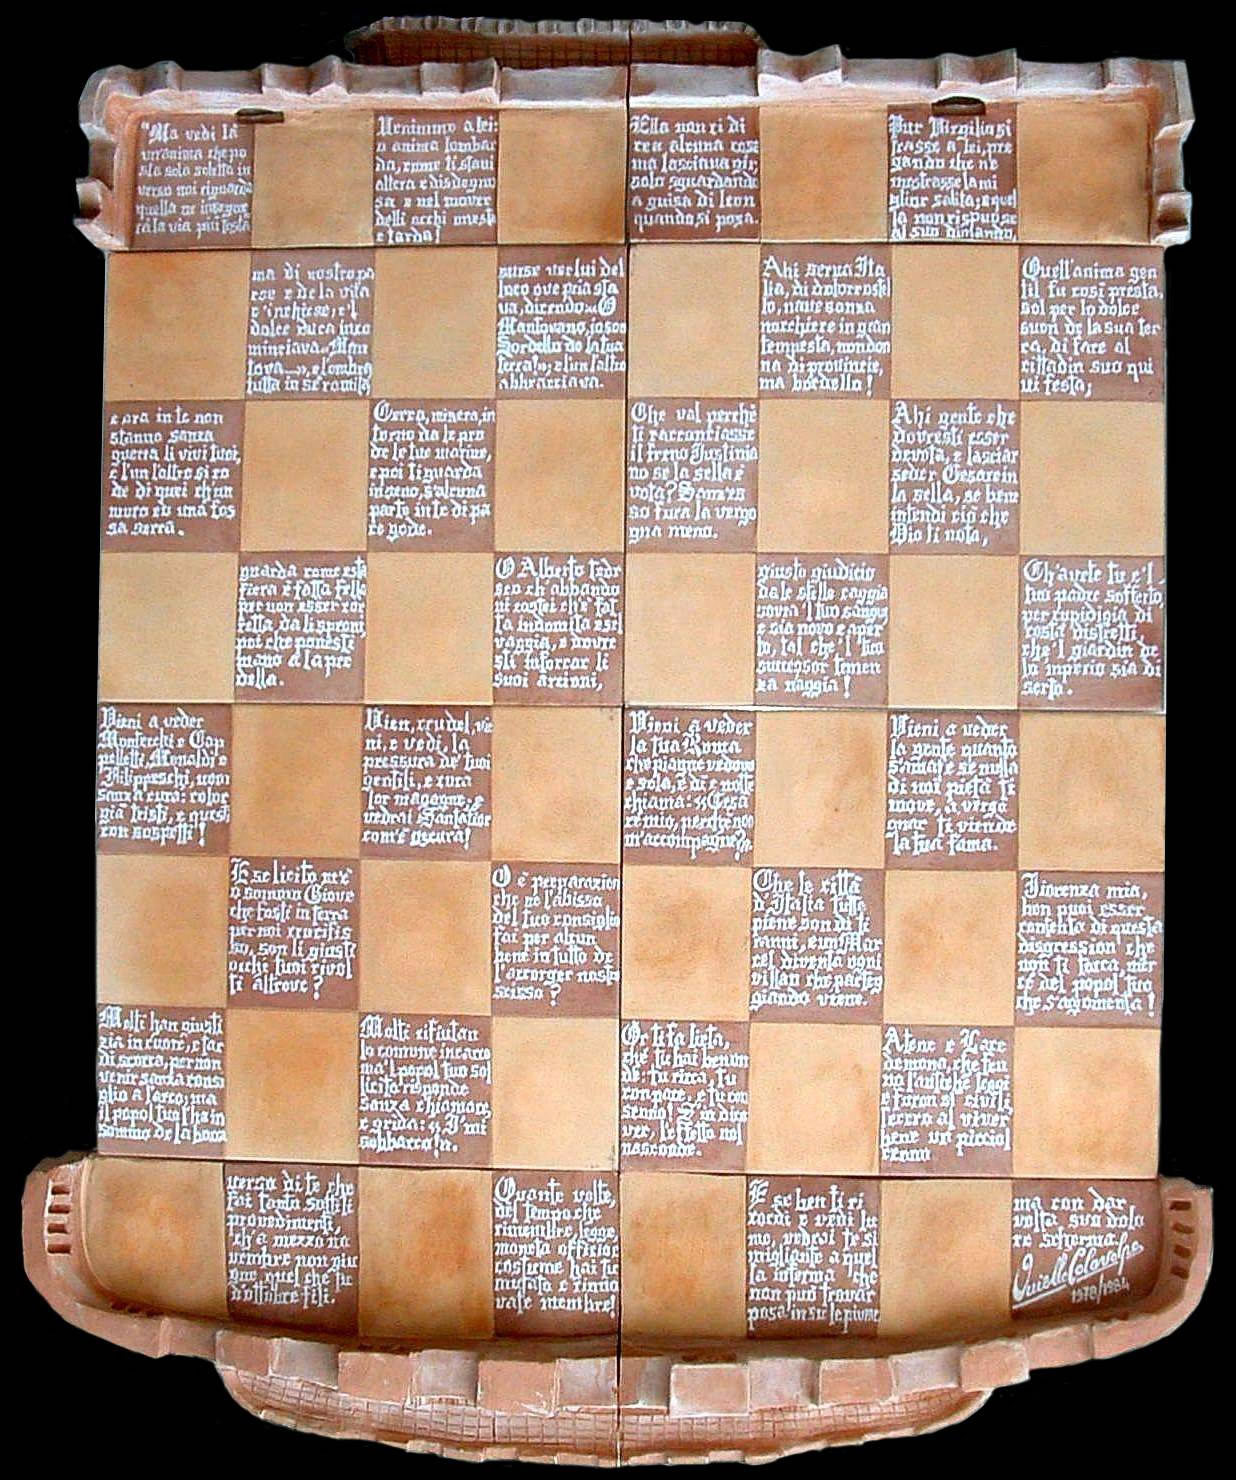 "Ma vedi là
un'anima che po
sta sola soletta in
verso noi riguarda
quella ne insegne
rà la via più testa
Venimmo a lei:
o anima lombar
da, come ti stavi
altera e disdegno
sa e nel mover
delli occhi onesta
e tarda!
Ella non ci di
cea alcuna cosa
ma lasciava gir,
solo sguardando
a guisa di leon
quando si posa.
Pur Virgilio si
trasse a lei, pre
gando che ne
mostrasse la mi
glior salita; e quel
la non rispuose
al suo dimando,
ma di nostro pa
ese e de la vita
c'inchiese, e 'l
dolce duca inco
minciava «Man
tova...», e l'ombra
tutta in sé romita,
surse ver lui del
loco ove pria sta
va, dicendo: «O
Mantovano, io son
Sordello de la tua
terra!»; e l'un l'altro
abbracciava.
Ahi serva Ita
lia, di dolore ostel
lo, nave sanza
nocchiere in gran
tempesta, non don
na di provincie,
ma bordello!
Quell'anima gen
til fu così presta,
sol per lo dolce
suon de la sua ter
ra, di fare al
cittadin suo qui
vi festa;
e ora in te non
stanno sanza
guerra li vivi tuoi,
e l'un l'altro si ro
de di quei ch'un
muro ed una fos
sa serra.
Cerca, misera, in
torno da le pro
de le tue marine,
e poi ti guarda
in seno, s'alcuna
parte in te di pa
ce gode.
Che val perché
ti racconciasse
il freno Iustinia
no se la sella è
vota? Sanz'es
so fora la vergo
gna meno.
Ahi gente che
dovresti esser
devota, e lasciar
seder Cesare in
la sella, se bene
intendi ciò che
Dio ti nota,
guarda come esta
fiera è fatta fella
per non esser cor
retta da li sproni,
poi che ponesti
mano a la pre
della.
O Alberto tedes
co ch'abbando
ni costei ch'è fat
ta indomita e sel
vaggia, e dovre
sti inforcar li
suoi arcioni,
giusto giudicio
da le stelle caggia
sovra 'l tuo sangue
e sia novo e aper
to, tal che 'l tuo
successor temen
za n'aggia!
Ch'avete tu e 'l
tuo padre sofferto,
per cupidigia di
costà distretti,
che 'l giardin de
lo 'mperio sia di
serto.
Vieni a veder
Montecchi e Cap
pelletti, Monaldi e
Filippeschi, uom
sanza cura: color
già tristi, e questi
con sospetti!
Vien, crudel, vie
ni, e vedi la
pressura de' tuoi
gentili, e cura
lor magagne; e
vedrai Santafior
com'è oscura!
Vieni a veder
la tua Roma
che piagne vedova
e sola, e dì e notte
chiama: «Cesa
re mio, perché non
m'accompagne?»
Vieni a veder
la gente quanto
s'ama! e se nulla
di noi pietà ti
move, a vergo
gnar ti vien de
la tua fama.
E se licito m'è
o sommo Giove
che fosti in terra
per noi crucifis
so, son li giusti
occhi tuoi rivol
ti altrove?
O è preparazion
che ne l'abisso
del tuo consiglio
fai per alcun
bene in tutto de
l'accorger nostro
scisso?
Che le città
d'Italia tutte
piene son di ti
ranni, e un Mar
cel diventa ogni
villan che parteg
giando viene.
Fiorenza mia,
ben puoi esser
contenta di questa
disgression che
non ti tocca, mer
cé del popol tuo
che s'argomenta!
Molti han giusti
zia in cuore, e tar
di scocca, per non
venir sanza consi
glio a l'arco; ma
il popol tuo l'ha in
sommo de la bocca
Molti rifiutan
lo comune incarco
ma 'l popol tuo sol
licito risponde
sanza chiamare,
e grida: «I' mi
sobbarco!».
Or ti fa lieta,
ché tu hai ben on
de: tu ricca, tu
con pace, e tu con
senno! S'i' dico
ver, l'effetto nol
nasconde.
Atene e Lace
demona, che fen
no l'antiche leggi
e furon sì civili,
fecero al viver
bene un picciol
cenno
verso di te che
fai tanto sottili
provedimenti,
ch'a mezzo no
vembre non giu
gne quel che tu
d'ottobre fili.
Quante volte,
del tempo che
rimembre, legge,
moneta, officio e
costume hai tu
mutato e rinno
vate membre!
E se ben ti ri
cordi e vedi lu
me, vedrai te si
migliante a quel
la inferma che
non può trovar
posa in su le piume
ma con dar
volta suo dolo
re scherma.
1978/1984